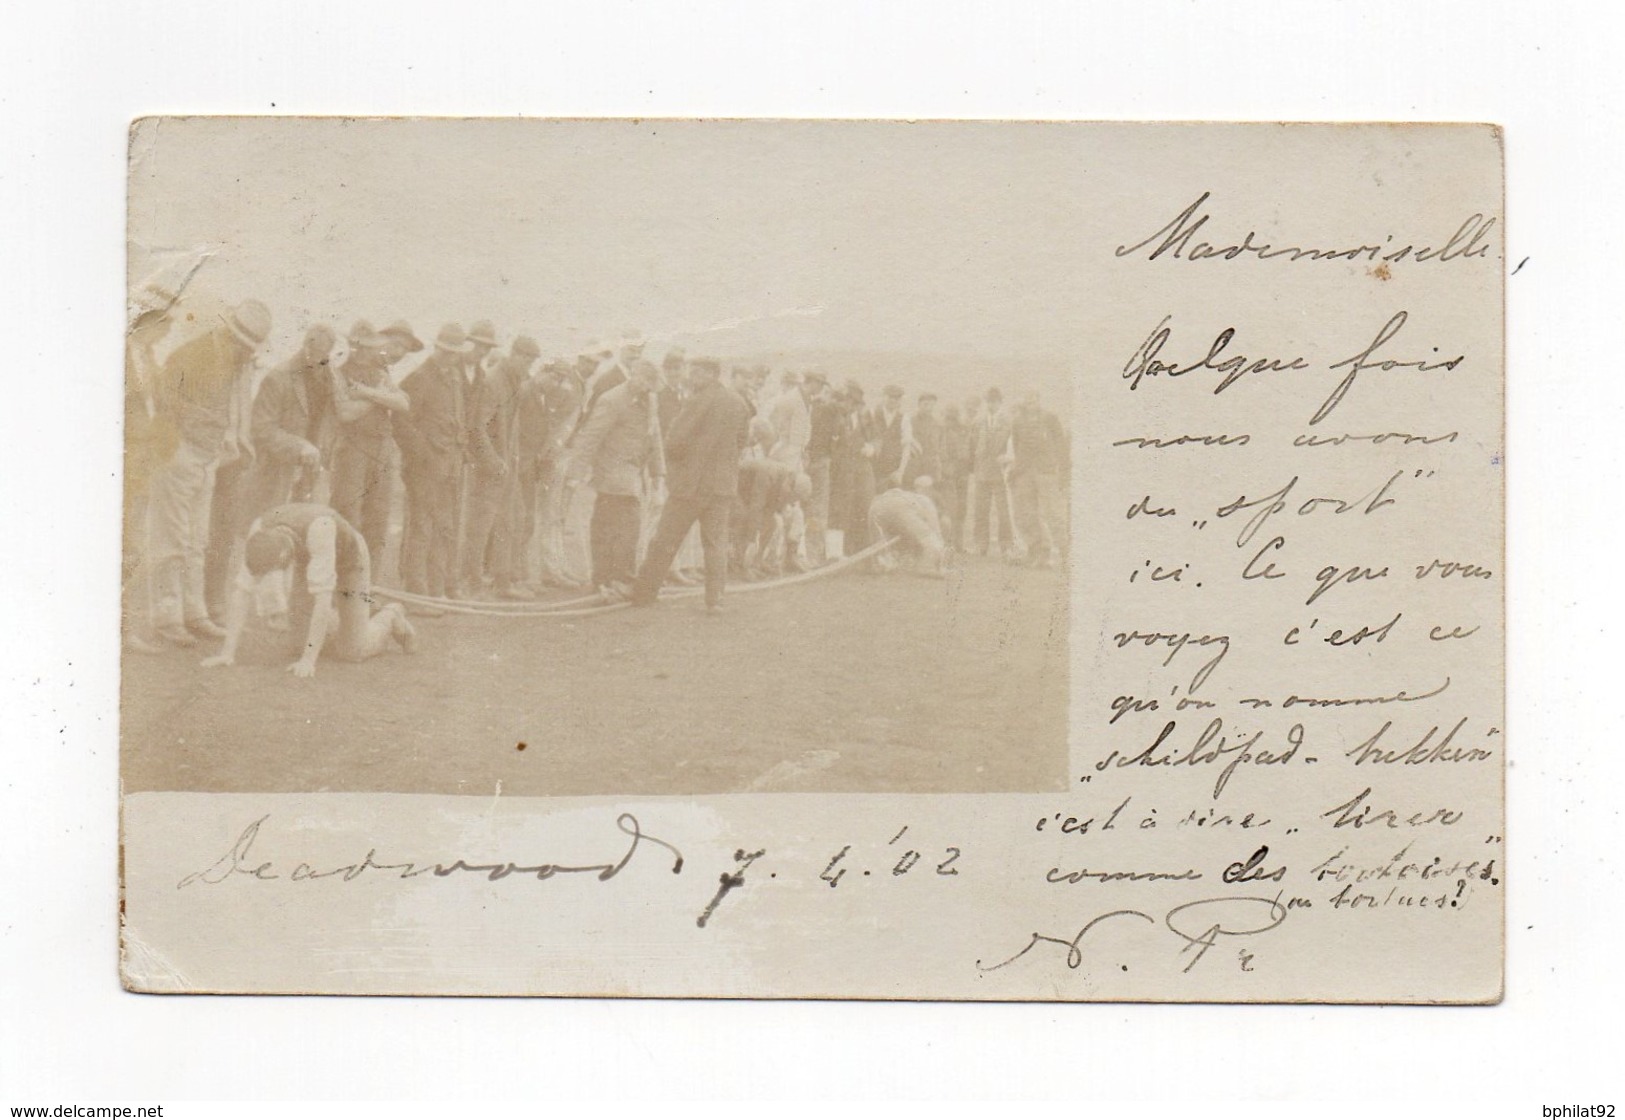 Mademoiselle,
Quelque fois
nous avons
du „sport"
ici. Ce que vous
voyez c'est ce
qu'on nomme
„schildpad-trekken"
c'est à dire „tirer
comme des tortoises"
(ou tortues?)
N. Pr
Deadwood, 7. 4.'02
www.delcampe.net
bphilat92